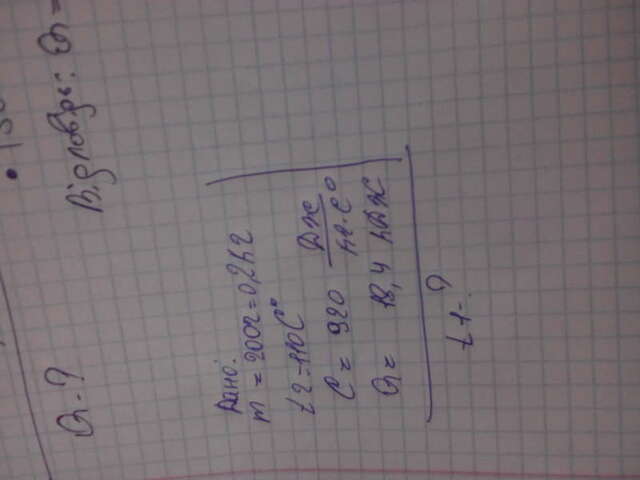 Відповідь: Q =
Q - ?
Дано:
m = 200г = 0,2кг
t2 - 110C°
C = 920 Дж/кг·C°
Q = 18,4 кДж
t1 - ?